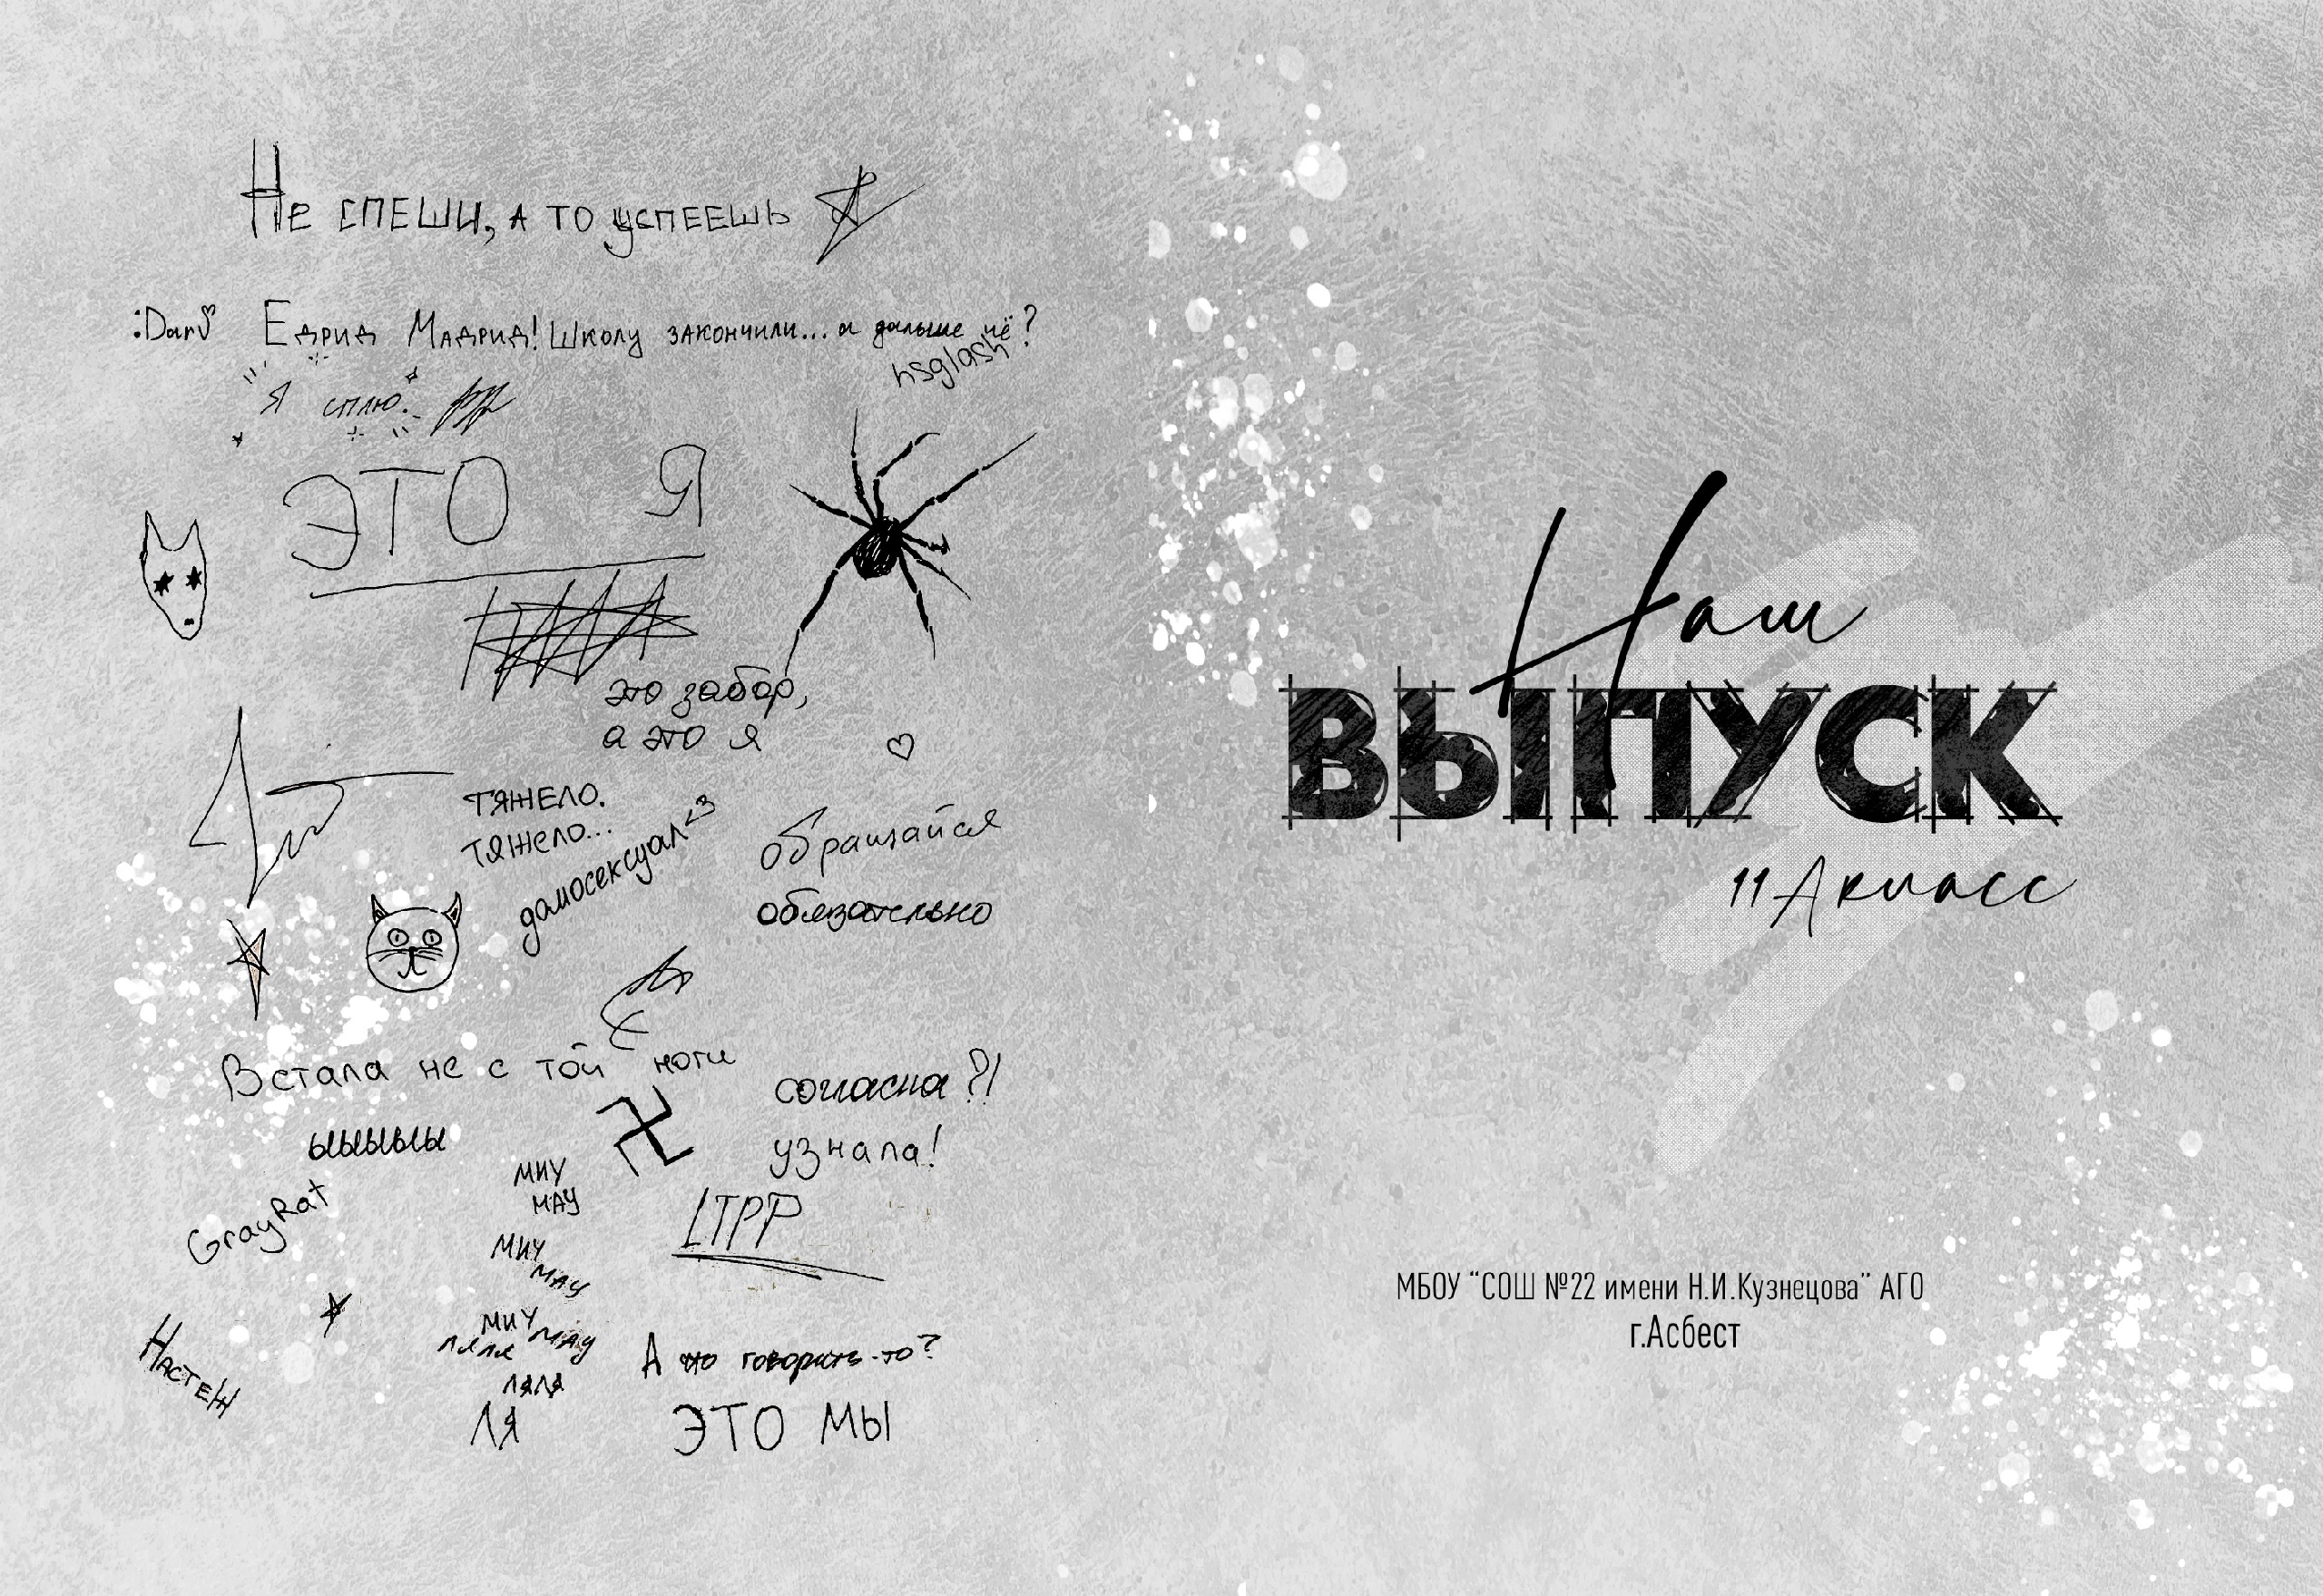 Не спеши, а то успеешь
:Dari
Едрид Мадрид! Школу закончили... а дальше чё?
hsglash
Я сплю.
ЭТО Я
это забор,
а это я
тяжело.
тяжело...
домосексуал<3
обращайся
обязательно
Встала не с той ноги
согласна?!
узнала!
ыыыыы
GrayRat
миу
мау
миу
мау
миу
мау
ляля
ляля
ЛЯ
LTPP
Настеж
А что говорить-то?
ЭТО МЫ
Наш
ВЫПУСК
11 А класс
МБОУ "СОШ №22 имени Н.И.Кузнецова" АГО
г.Асбест